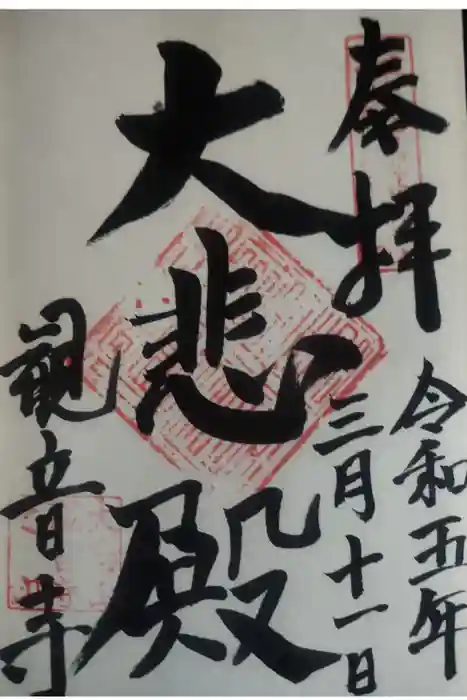 奉拝
令和五年
三月十一日
大悲殿
観音寺